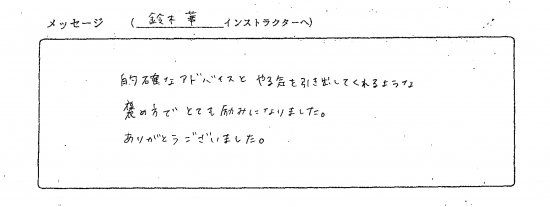 メッセージ (鈴木 華 インストラクターへ)
的確なアドバイスと やる気を引き出してくれるような
褒め方で とても励みになりました。
ありがとうございました。